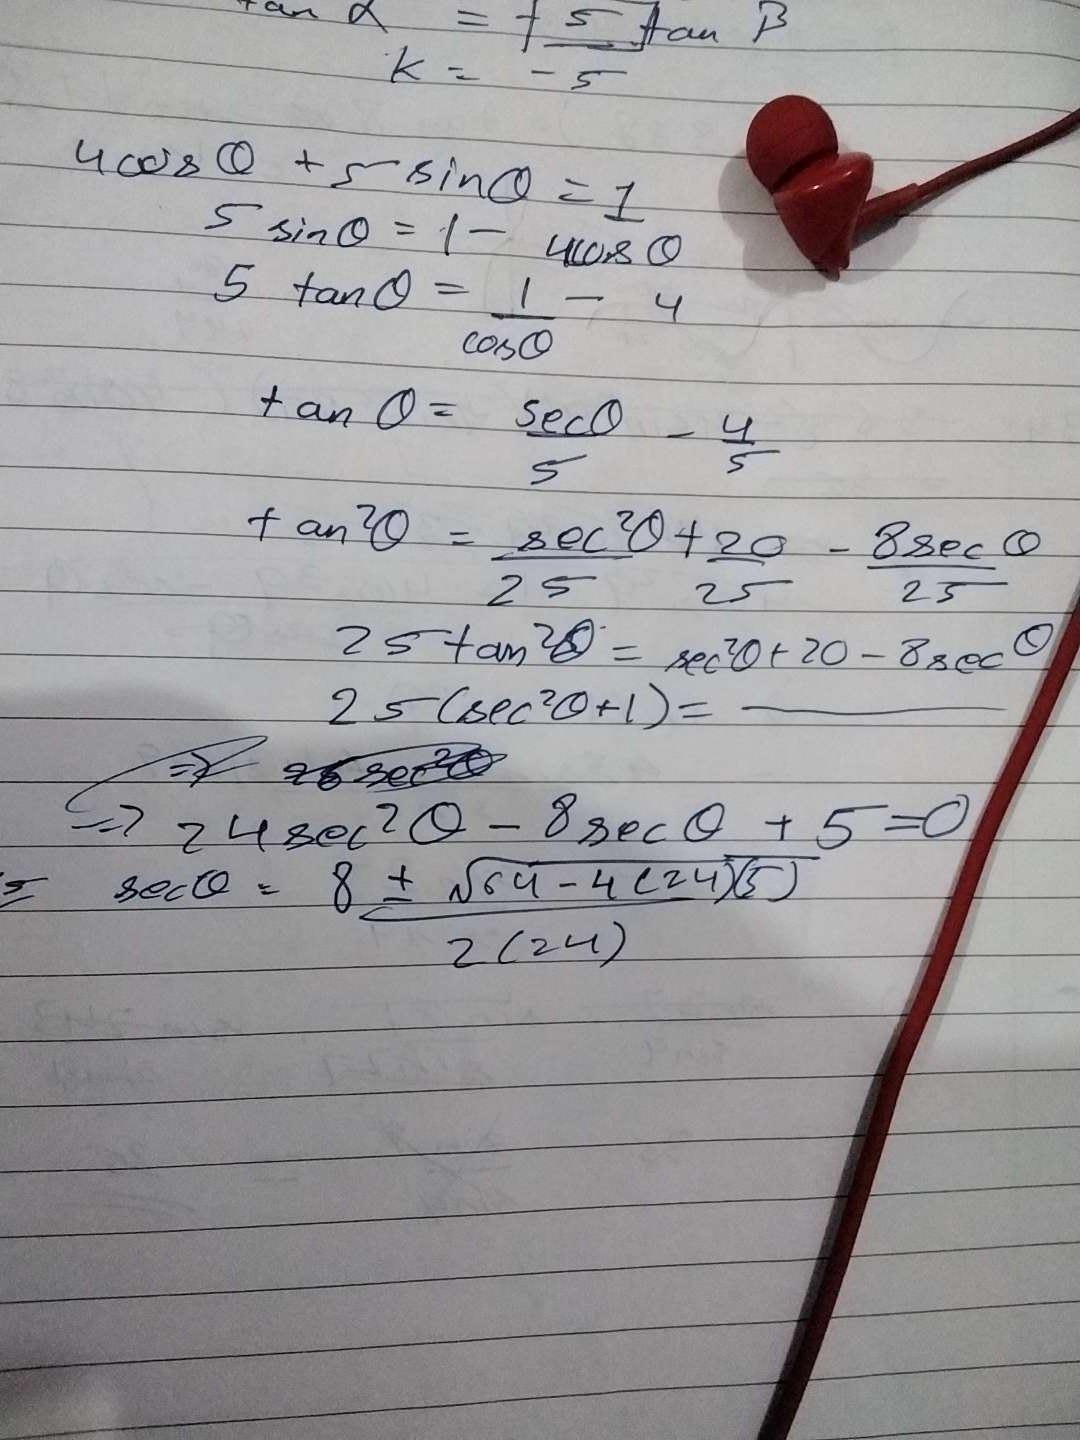 tan α = + 5 tan β
k = -5
4cosθ + 5 sinθ = 1
5 sinθ = 1 - 4cosθ
5 tanθ = 1/cosθ - 4
tanθ = secθ/5 - 4/5
tan²θ = sec²θ/25 + 20/25 - 8secθ/25
25tan²θ = sec²θ + 20 - 8secθ
25(sec²θ+1) = ———
⇒ 24sec²θ - 8secθ + 5 = 0
secθ = 8 ± √64 - 4(24)(5)
2(24)